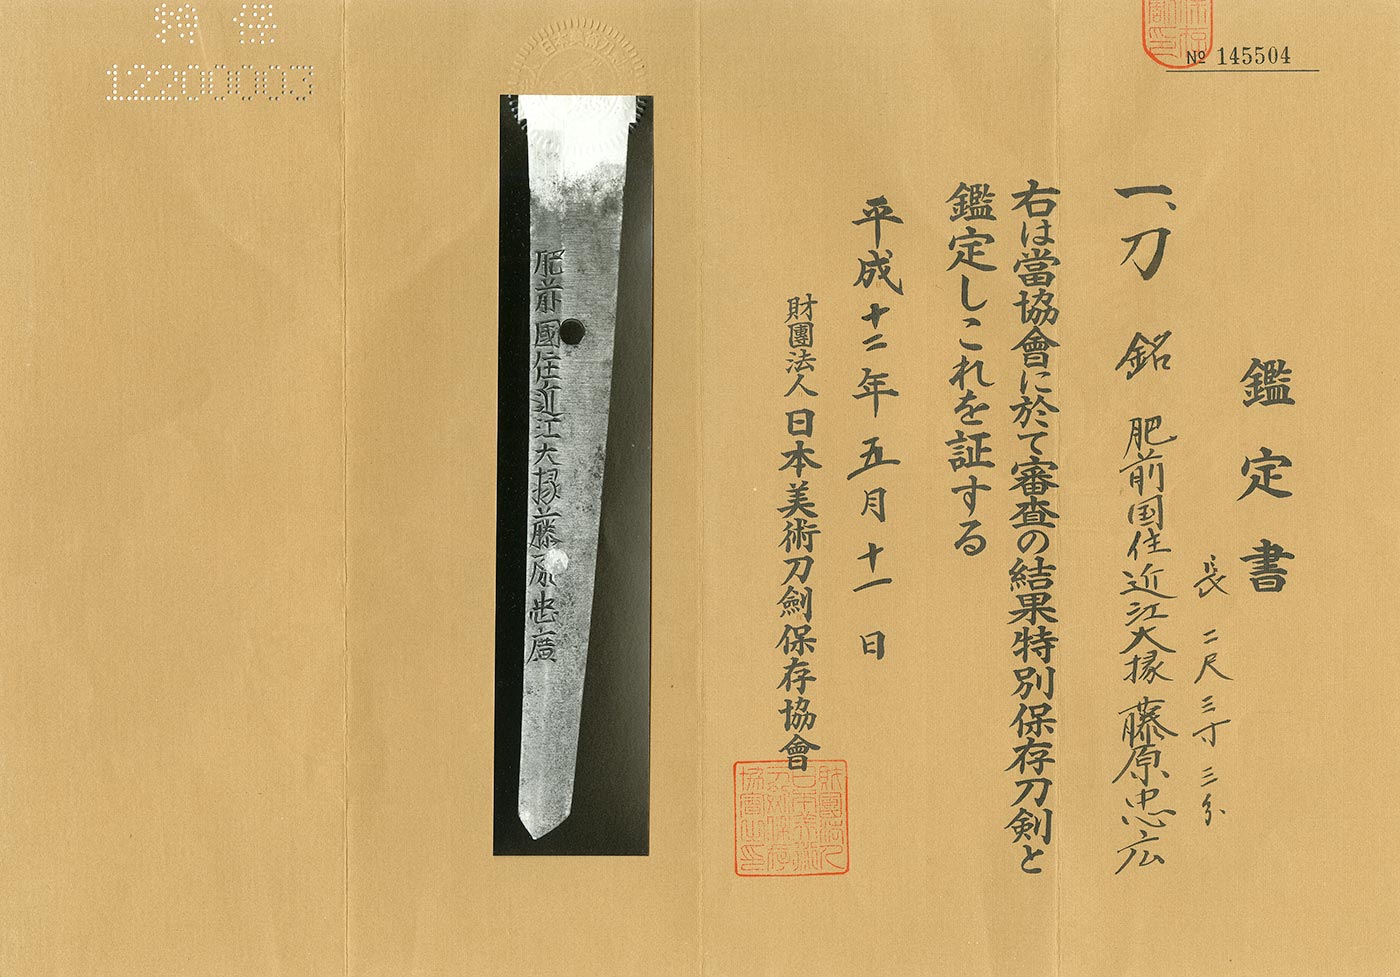 № 145504
鑑定書
長 二尺三寸三分
一、刀 銘 肥前国住近江大掾藤原忠広
右は當協會に於て審査の結果特別保存刀剣と
鑑定しこれを証する
平成十二年五月十一日
財團法人 日本美術刀劍保存協會
肥前國住近江大掾藤原忠廣
12200003